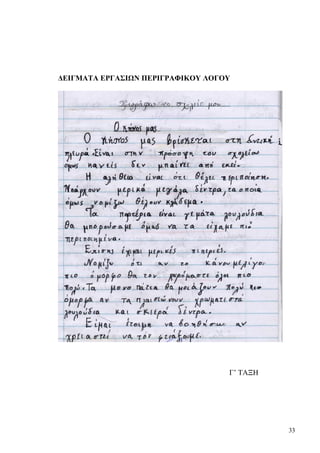 ΔΕΙΓΜΑΤΑ ΕΡΓΑΣΙΩΝ ΠΕΡΙΓΡΑΦΙΚΟΥ ΛΟΓΟΥ
σχολείο μου
Ο κήπος μας
Ο κήπος μας βρίσκεται στη δυτική
πλευρά. Είναι στην πρόσοψη του σχολείου
όμως κανείς δεν μπαίνει από εκεί.
Η αλήθεια είναι ότι θέλει περιποίηση.
Υπάρχουν μερικά μεγάλα δέντρα, τα οποία
όμως νομίζω θέλουν κλάδεμα.
Τα παρτέρια είναι γεμάτα λουλούδια
θα μπορούσαμε όμως να τα είχαμε πιο
περιποιημένα.
Επίσης έχουμε μερικές πιπεριές.
Νομίζω ότι αν το κάναν με λίγο
πιο όμορφο θα τον χαιρόμαστε όλοι πιο
πολύ. Τα μονοπάτια θα μοιάζουν πολύ πιο
όμορφα αν τα πλαισιώνουν χρωματιστά
λουλούδια και σκιερά δέντρα.
Είμαι έτοιμη να βοηθήσω αν
χρειαστεί να τον φτιάξουμε.
Γ' ΤΑΞΗ
33